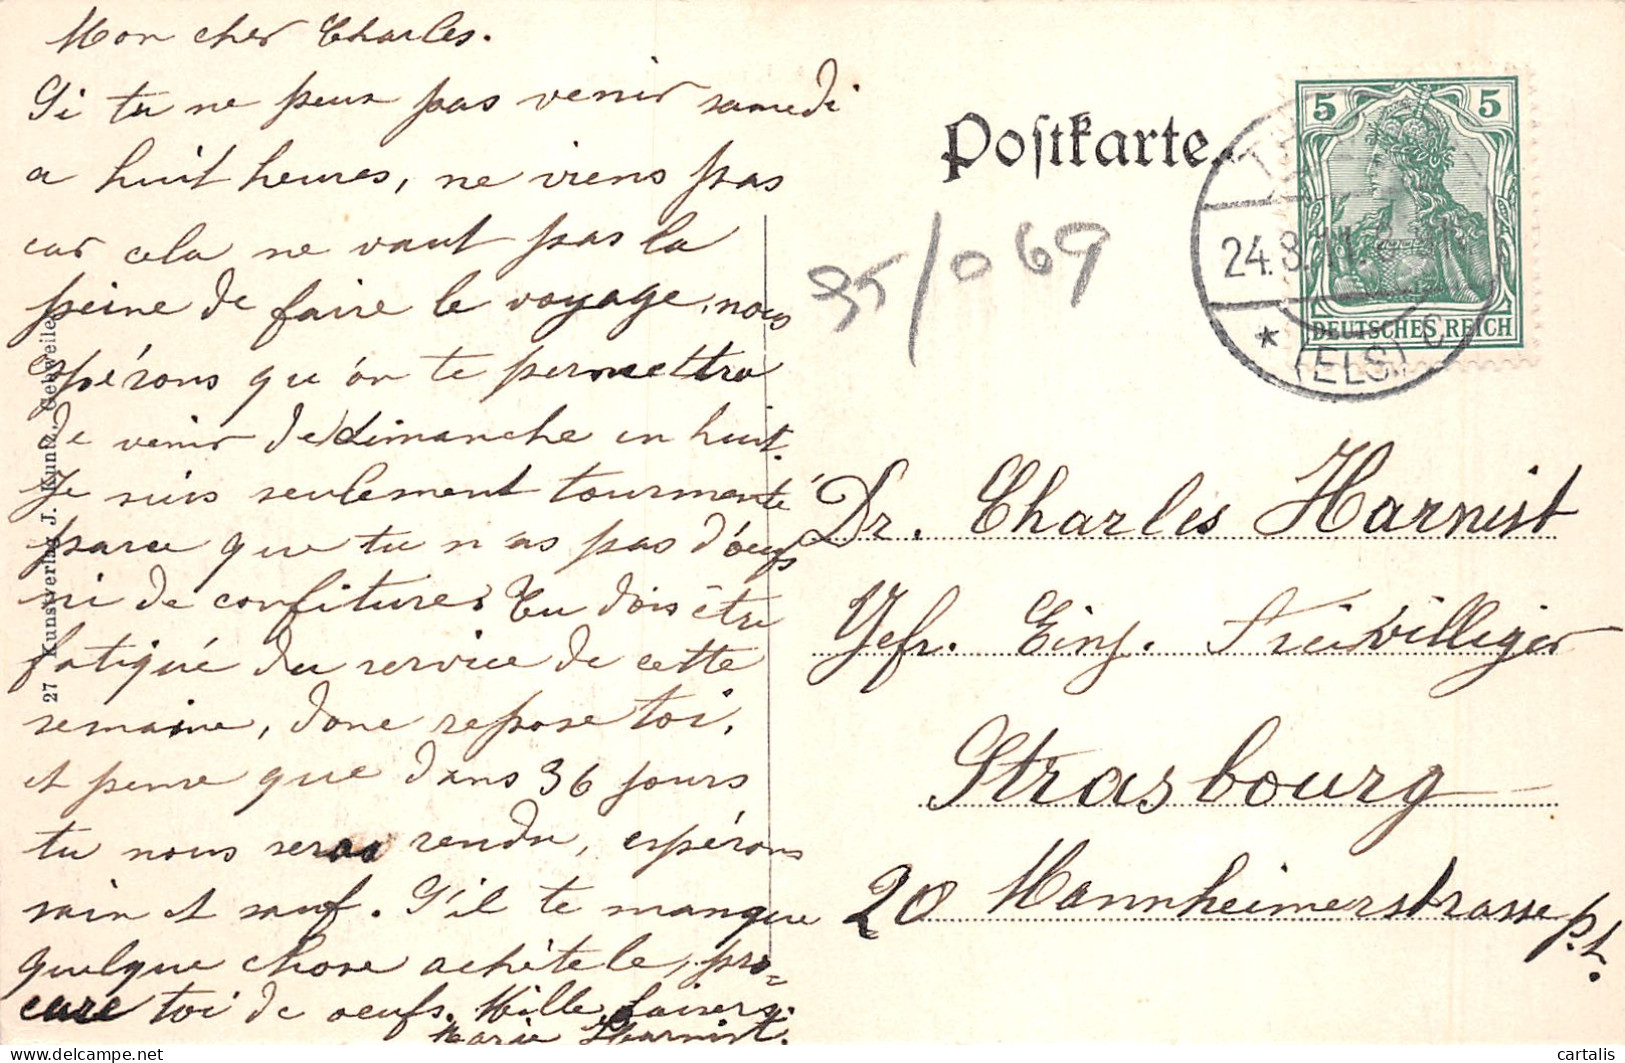 Mon cher Charles.
Si tu ne peux pas venir samedi
a huit heures, ne viens pas
car cela ne vaut pas la
peine de faire le voyage, nous
espérons qu'on te permettra
de venir de dimanche en huit.
Je suis seulement tourmenté
parce que tu n as pas d'œufs
ni de confitures Tu dois être
fatigué du service de cette
semaine, donc repose toi,
et pense que dans 36 jours
tu nous seras rendu, espérons
sain et sauf. S'il te manque
quelque chose achète le, pro=
cure toi de oeufs. Mille baisers.
Marie Harnist.
27 Kunstverlag J. Kuntz, Gebweiler
Postkarte.
95/069
5 5
DEUTSCHES REICH
24.8.11.8
* (ELS.) c
Dr. Charles Harnist
Gefr. Einj. Freiwilliger
Strasbourg
20 Mannheimerstrasse pt.
cartalis